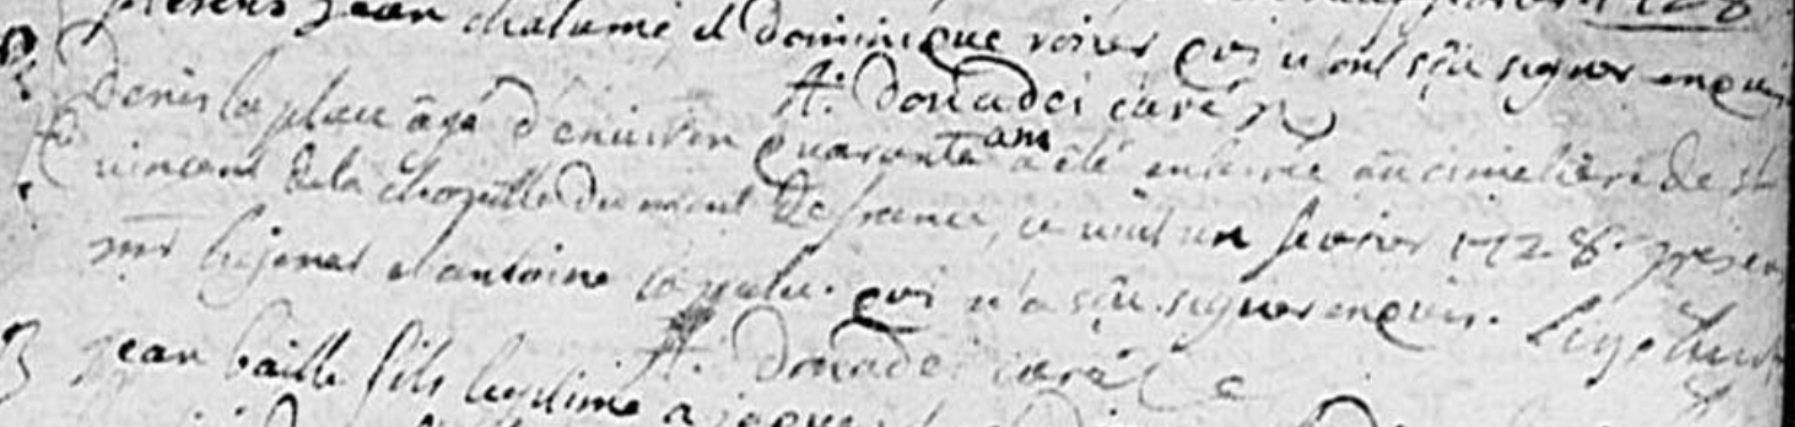 presens jean chalumé et Dominique qui n'ont sçu signer enquis
A: Donadei curé
Denis la place âgé d'environ quarante ans a été enterré au cimetière de st
vincent de la chapelle du mont de france, ce vint un fevrier 1728. presen
mr lejenet et antoine qui n'a sçu signer enquis.
A. Donadei curé
jean baille fils legitime a jacques